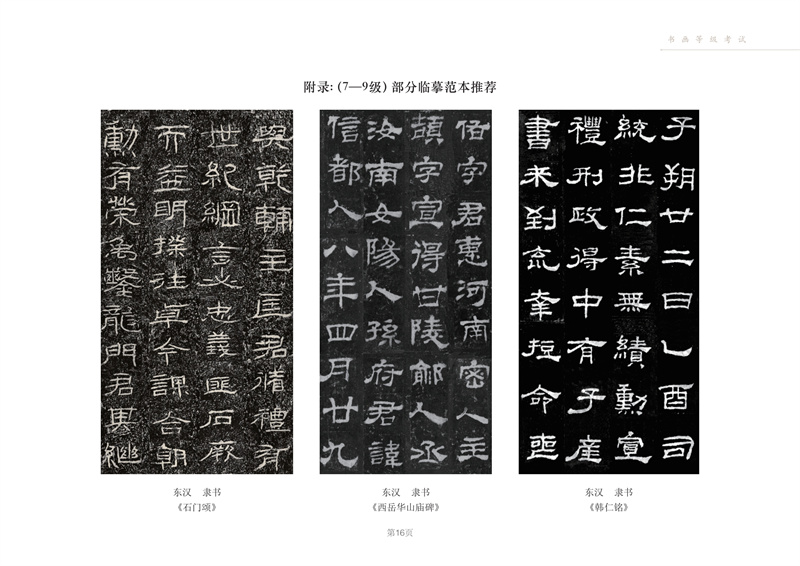 书画等级考试
附录：（7—9级）部分临摹范本推荐
與乾輔主匡君脩禮有
世紀綱言必忠義匪石厥
而益明揆往卓今謀合朝
勳有榮禹鑿龍門君其繼
佰字君惠河南密人主
頡字宣得甘陵鄃人丞
汝南女陽人孫府君諱
信都人八年四月廿九
子朔廿二日乙酉司
統非仁素無績勳宣
禮刑政得中有子產
書未到不幸短命喪
东汉 隶书
《石门颂》
东汉 隶书
《西岳华山庙碑》
东汉 隶书
《韩仁铭》
第16页